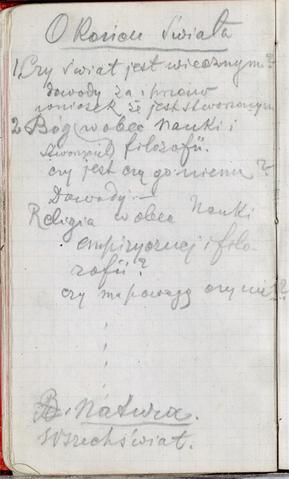 O Końcu Świata
1 Czy świat jest wiecznym?
dowody za i
wniosek że jest stworzonym
2 Bóg wobec nauki i
(Stworzyciel) filozofii.
czy jest czy go niema?
Dowody:—
Religia wobec Nauki
empirycznej i filo-
zofii?
czy ma powagę czy nie?
B. Natura.
Wszechświat.